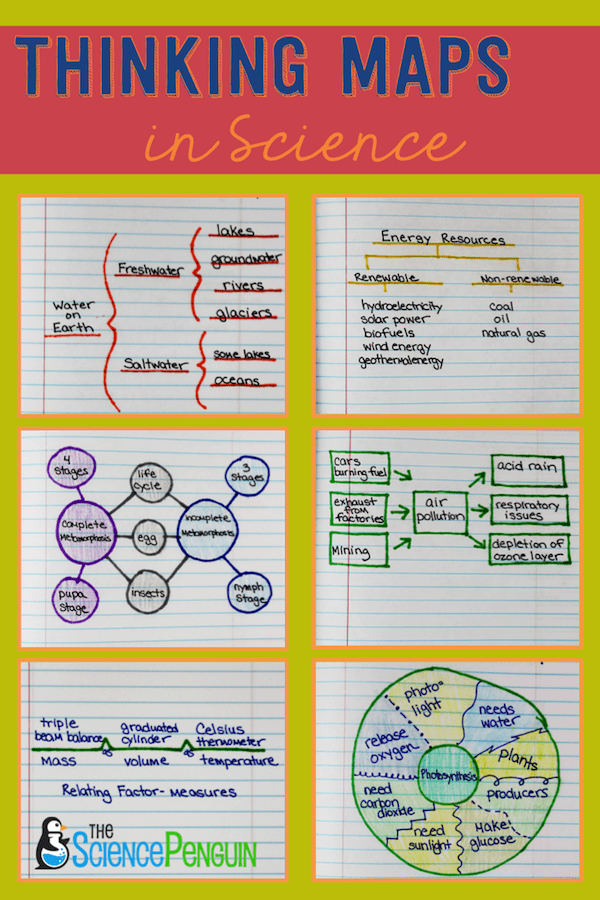 THINKING MAPS
in Science
Water
on
Earth
Freshwater
Saltwater
lakes
groundwater
rivers
glaciers
some lakes
oceans
Energy Resources
Renewable
hydroelectricity
solar power
biofuels
wind energy
geothermal energy
Non-renewable
coal
oil
natural gas
4
stages
Complete
Metamorphosis
pupa
stage
life
cycle
egg
insects
3
stages
Incomplete
Metamorphosis
nymph
stage
cars
burning fuel
exhaust
from
factories
Mining
air
pollution
acid rain
respiratory
issues
depletion of
ozone layer
triple
beam balance
Mass
as
graduated
cylinder
volume
as
Celsius
thermometer
temperature
Relating Factor- measures
THE
SciencePenguin
Photosynthesis
photo=
light
needs
water
plants
producers
Make
glucose
need
sunlight
need
carbon
dioxide
release
oxygen